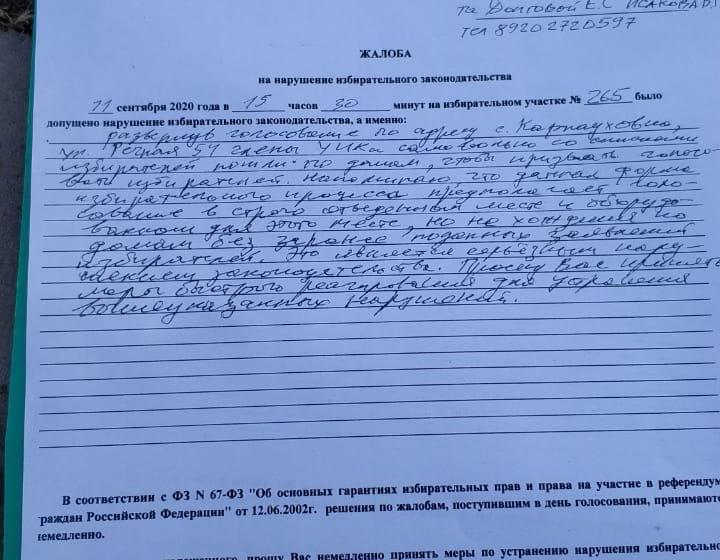 та Долговой Е.С Исакова Д.
тел 89202720597
ЖАЛОБА
на нарушение избирательного законодательства
11 сентября 2020 года в 15 часов 30 минут на избирательном участке № 265 было
допущено нарушение избирательного законодательства, а именно:
развернув голосование по адресу с. Карнауховка,
ул. Речная 54 члены УИКа самовольно со списками
избирателей пошли по домам, чтобы призвать голосо-
вать избирателей. Напоминаю, что данная форма
избирательного процесса предполагает голо-
сование в строго отведенном месте и оборудо-
ванном для этого месте, но не хождения по
домам без заранее поданных заявлений
избирателей. Это является серьёзным нару-
шением законодательства. Просим Вас принять
меры быстрого реагирования для устранения
вышеуказанных нарушений.
В соответствии с ФЗ N 67-ФЗ "Об основных гарантиях избирательных прав и права на участие в референдум
граждан Российской Федерации" от 12.06.2002г. решения по жалобам, поступившим в день голосования, принимаютс
немедленно.
прошу Вас немедленно принять меры по устранению нарушения избирательно